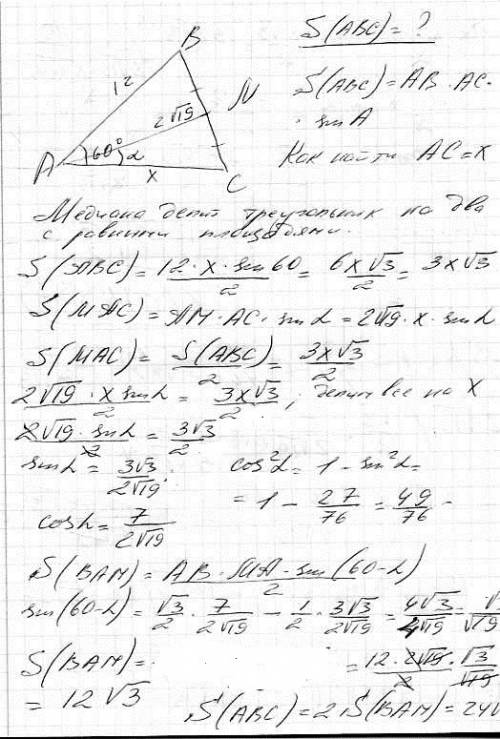 S(ABC) = ?
B
12
2√19
M
A
60°
α
x
C
S(ABC) = AB · AC ·
· sin A
Как найти AC = x
Медиана делит треугольник на два
с равными площадями.
S(ABC) = 12 · x · sin 60 / 2 = 6x√3 / 2 = 3x√3
S(MAC) = AM · AC · sin α = 2√19 · x · sin α
S(MAC) = S(ABC) / 2 = 3x√3 / 2
2√19 · x sin α / 2 = 3x√3 / 2 ; делим все на x
2√19 · sin α / 2 = 3√3 / 2
sin α = 3√3 / 2√19 .
cos²α = 1 - sin²α =
= 1 - 27/76 = 49/76
cos α = 7 / 2√19
S(BAM) = AB · MA · sin(60-α) / 2
sin(60-α) = √3/2 · 7/2√19 - 1/2 · 3√3/2√19 = 4√3/4√19 = √3/√19
S(BAM) =
= 12 · 2√19 / 2 · √3/√19
= 12√3
S(ABC) = 2 S(BAM) = 24√